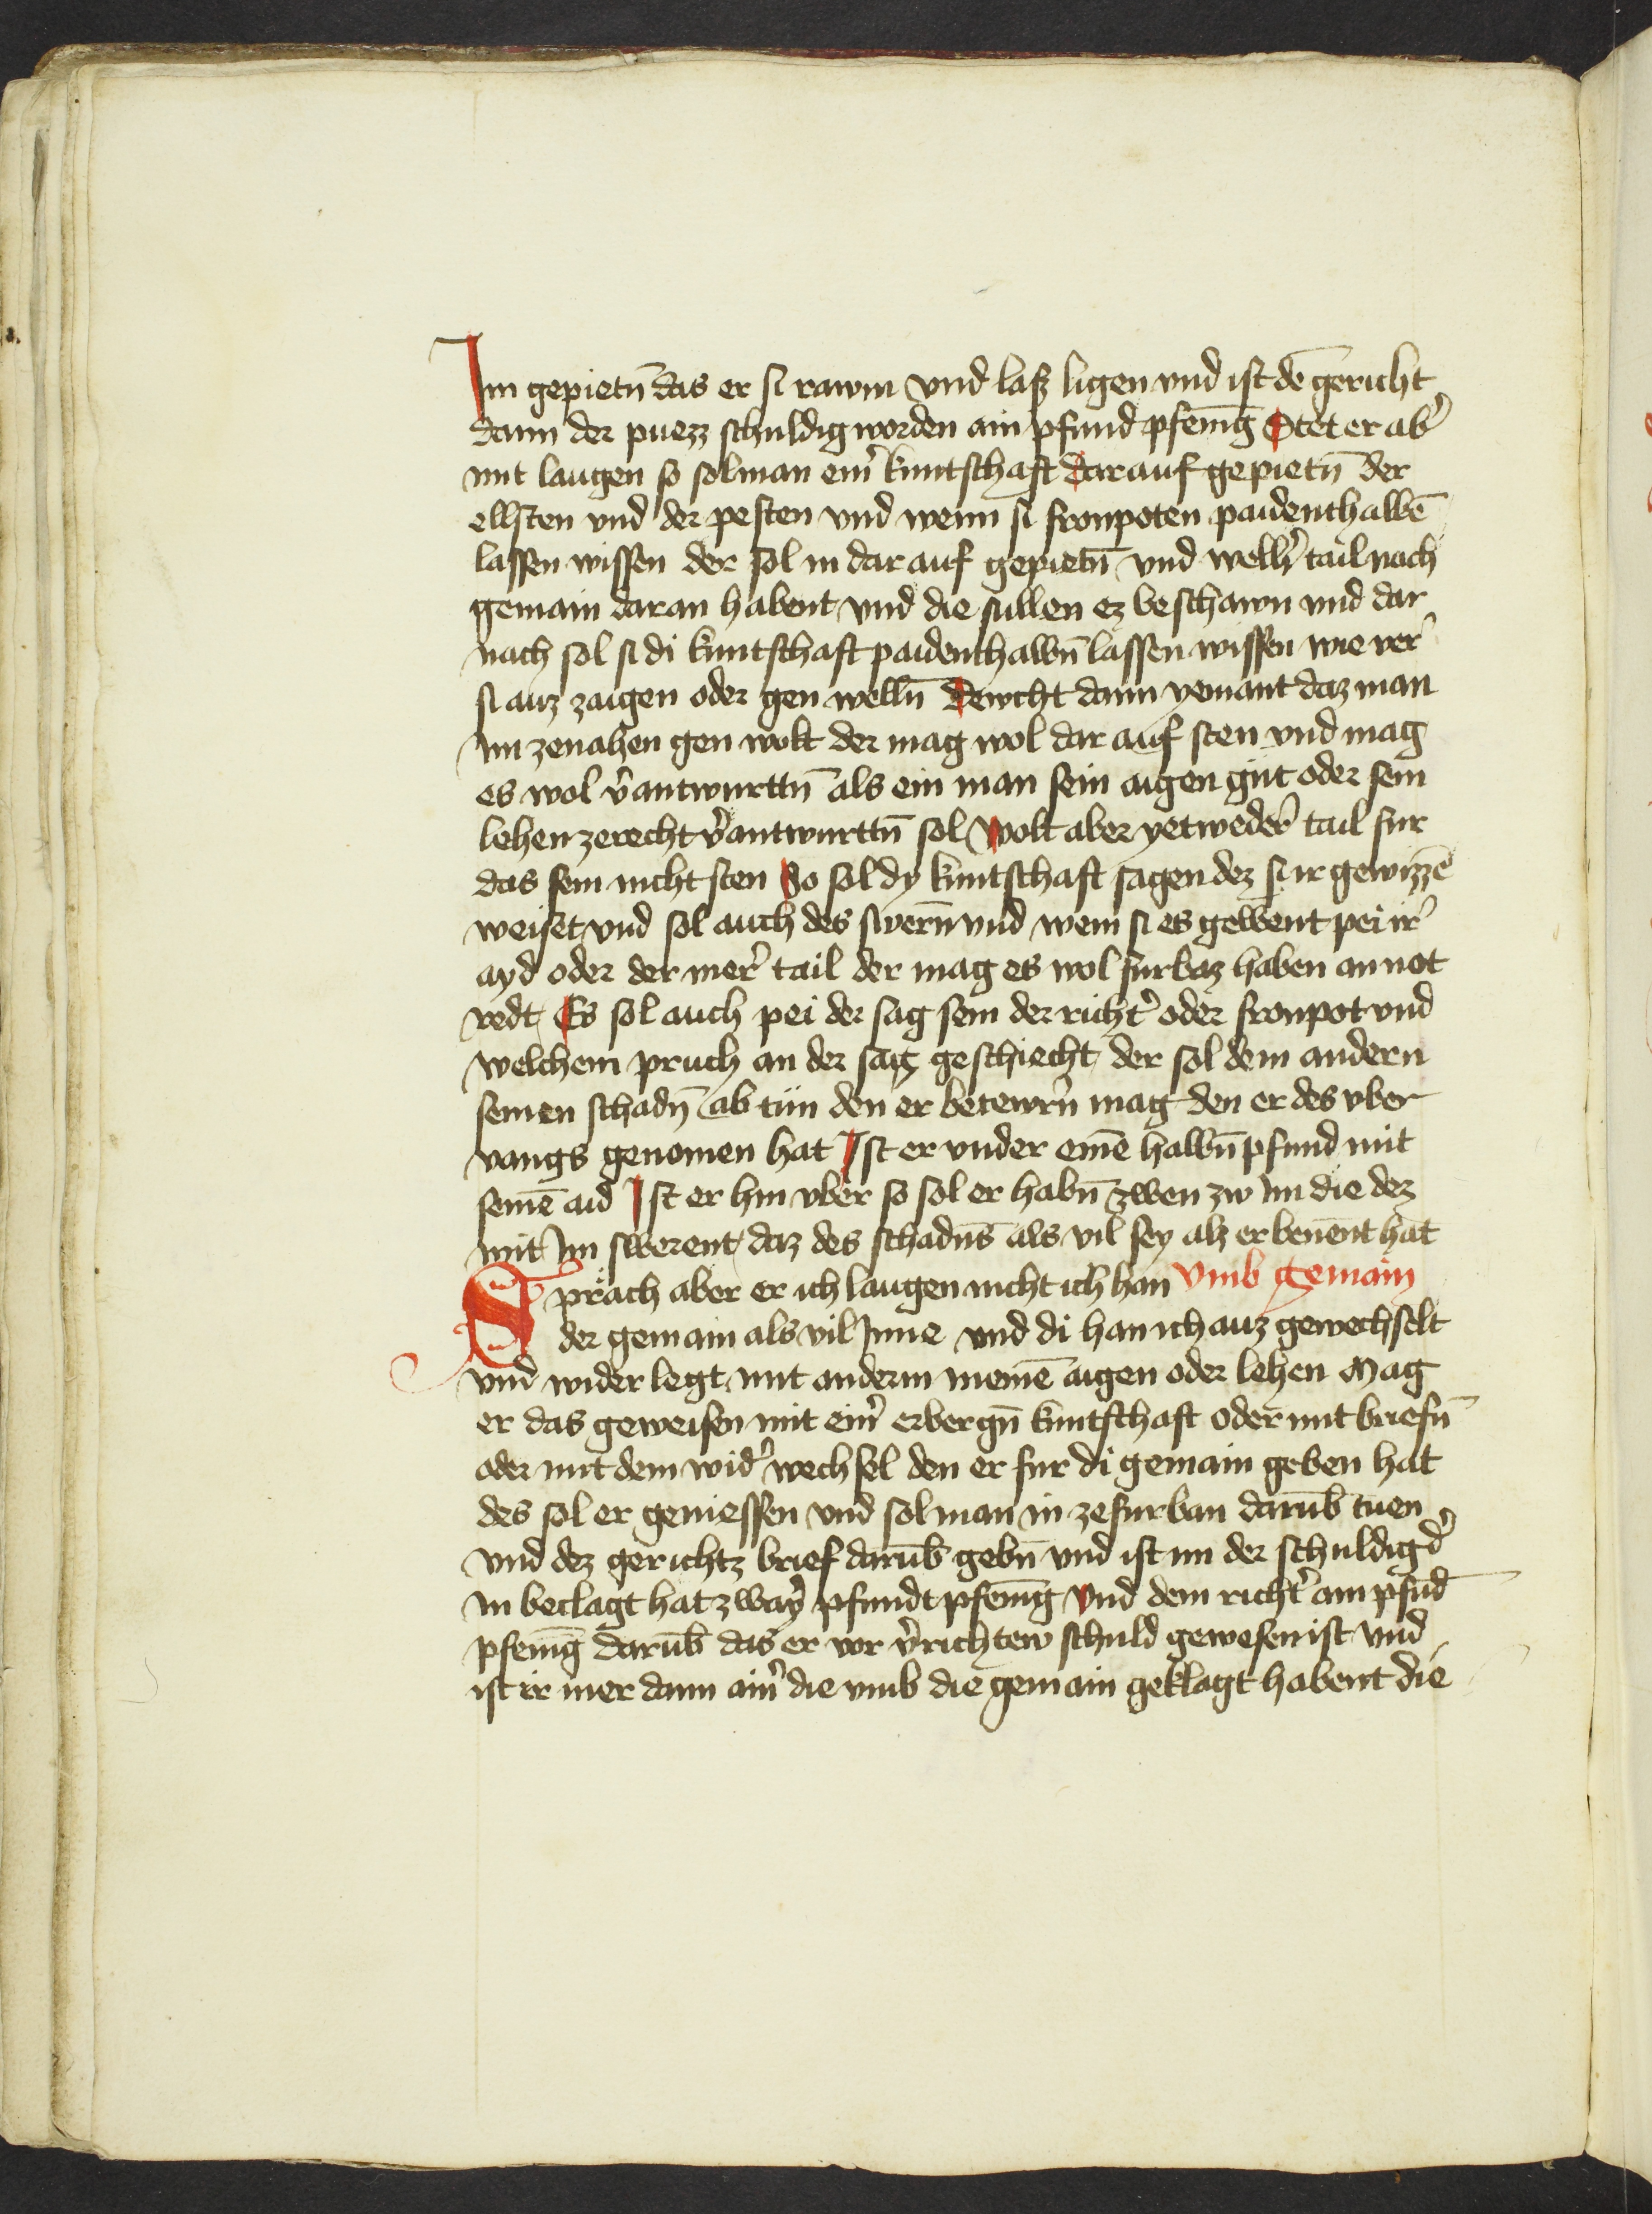 Im gepietn̄ das er si rawm vnd lasz ligen vnd ist dē gericht
dann der puezz schuldig worden ain pfund pfenīg Stet er ab̓
mit laugen so sol man ein̓ kuntschaft dar auf gepietn̄ der
ellsten vnd der pesten vnd wenn si fronpoten paidenthalbē
lassen wissen der sol in dar auf gepietn̄ vnd welh̓ tail noch
gemain daran habent vnd die sullen ez beschawn vnd dar
nach sol si di kuntschaft paidenthalbn̄ lassen wissen wie ver̓
si auz zaigen oder gen welln̄ Dewcht dann yemant daz man
im ze nahen gen wolt der mag wol dar auf sten vnd mag
es wol v̓antwurttn̄ als ein man sein aigen gut oder sein
lehen ze recht v̓antwurttn̄ sol Wolt aber yetweder̓ tail fur
das sein nicht sten So sol dy kuntschaft sagen dez si ir gewizzē
weiset vnd sol auch des swern̄ vnd wem si es gebent pei ir̓
ayd oder der mer̓ tail der mag es wol furbaz haben an not
redt Es sol auch pei der sag sein der richt̓ oder fronpot vnd
welchem pruch an der sag geschiecht der sol dem andern
seinen schadn̄ ab tun den er betewrn̄ mag den er des vber
vangs genomen hat Ist er vnder einē halbn̄ pfund mit
seinē aid Ist er hin vber so sol er habn̄ zwen zw im die dez
mit Im swerent daz des schadn̄s als vil sey alz er benent hat
Sprach aber er ich laugen nicht ich han Vmb gemain
der gemain als vil Inne vnd di han ich auz gewechselt
vnd wider legt mit anderm meinē aigen oder lehen Mag
er das geweisen mit ein̓ erbergn̄ kuntschaft oder mit briefn̄
oder mit dem wid̓ wechsel den er fur di gemain geben hat
des sol er geniessen vnd sol man in ze furban darūb tuen
vnd dez gerichtz brief darūb gebn̄ vnd ist im der schuldig d̓
in beclagt hat zway pfundt pfenīg vnd dem richt̓ ain pfūd
pfenīg darūb das er vor v̓richtew schuld gewesen ist vnd
ist ir mer dann ain̓ die vmb die gemain geklagt habent die